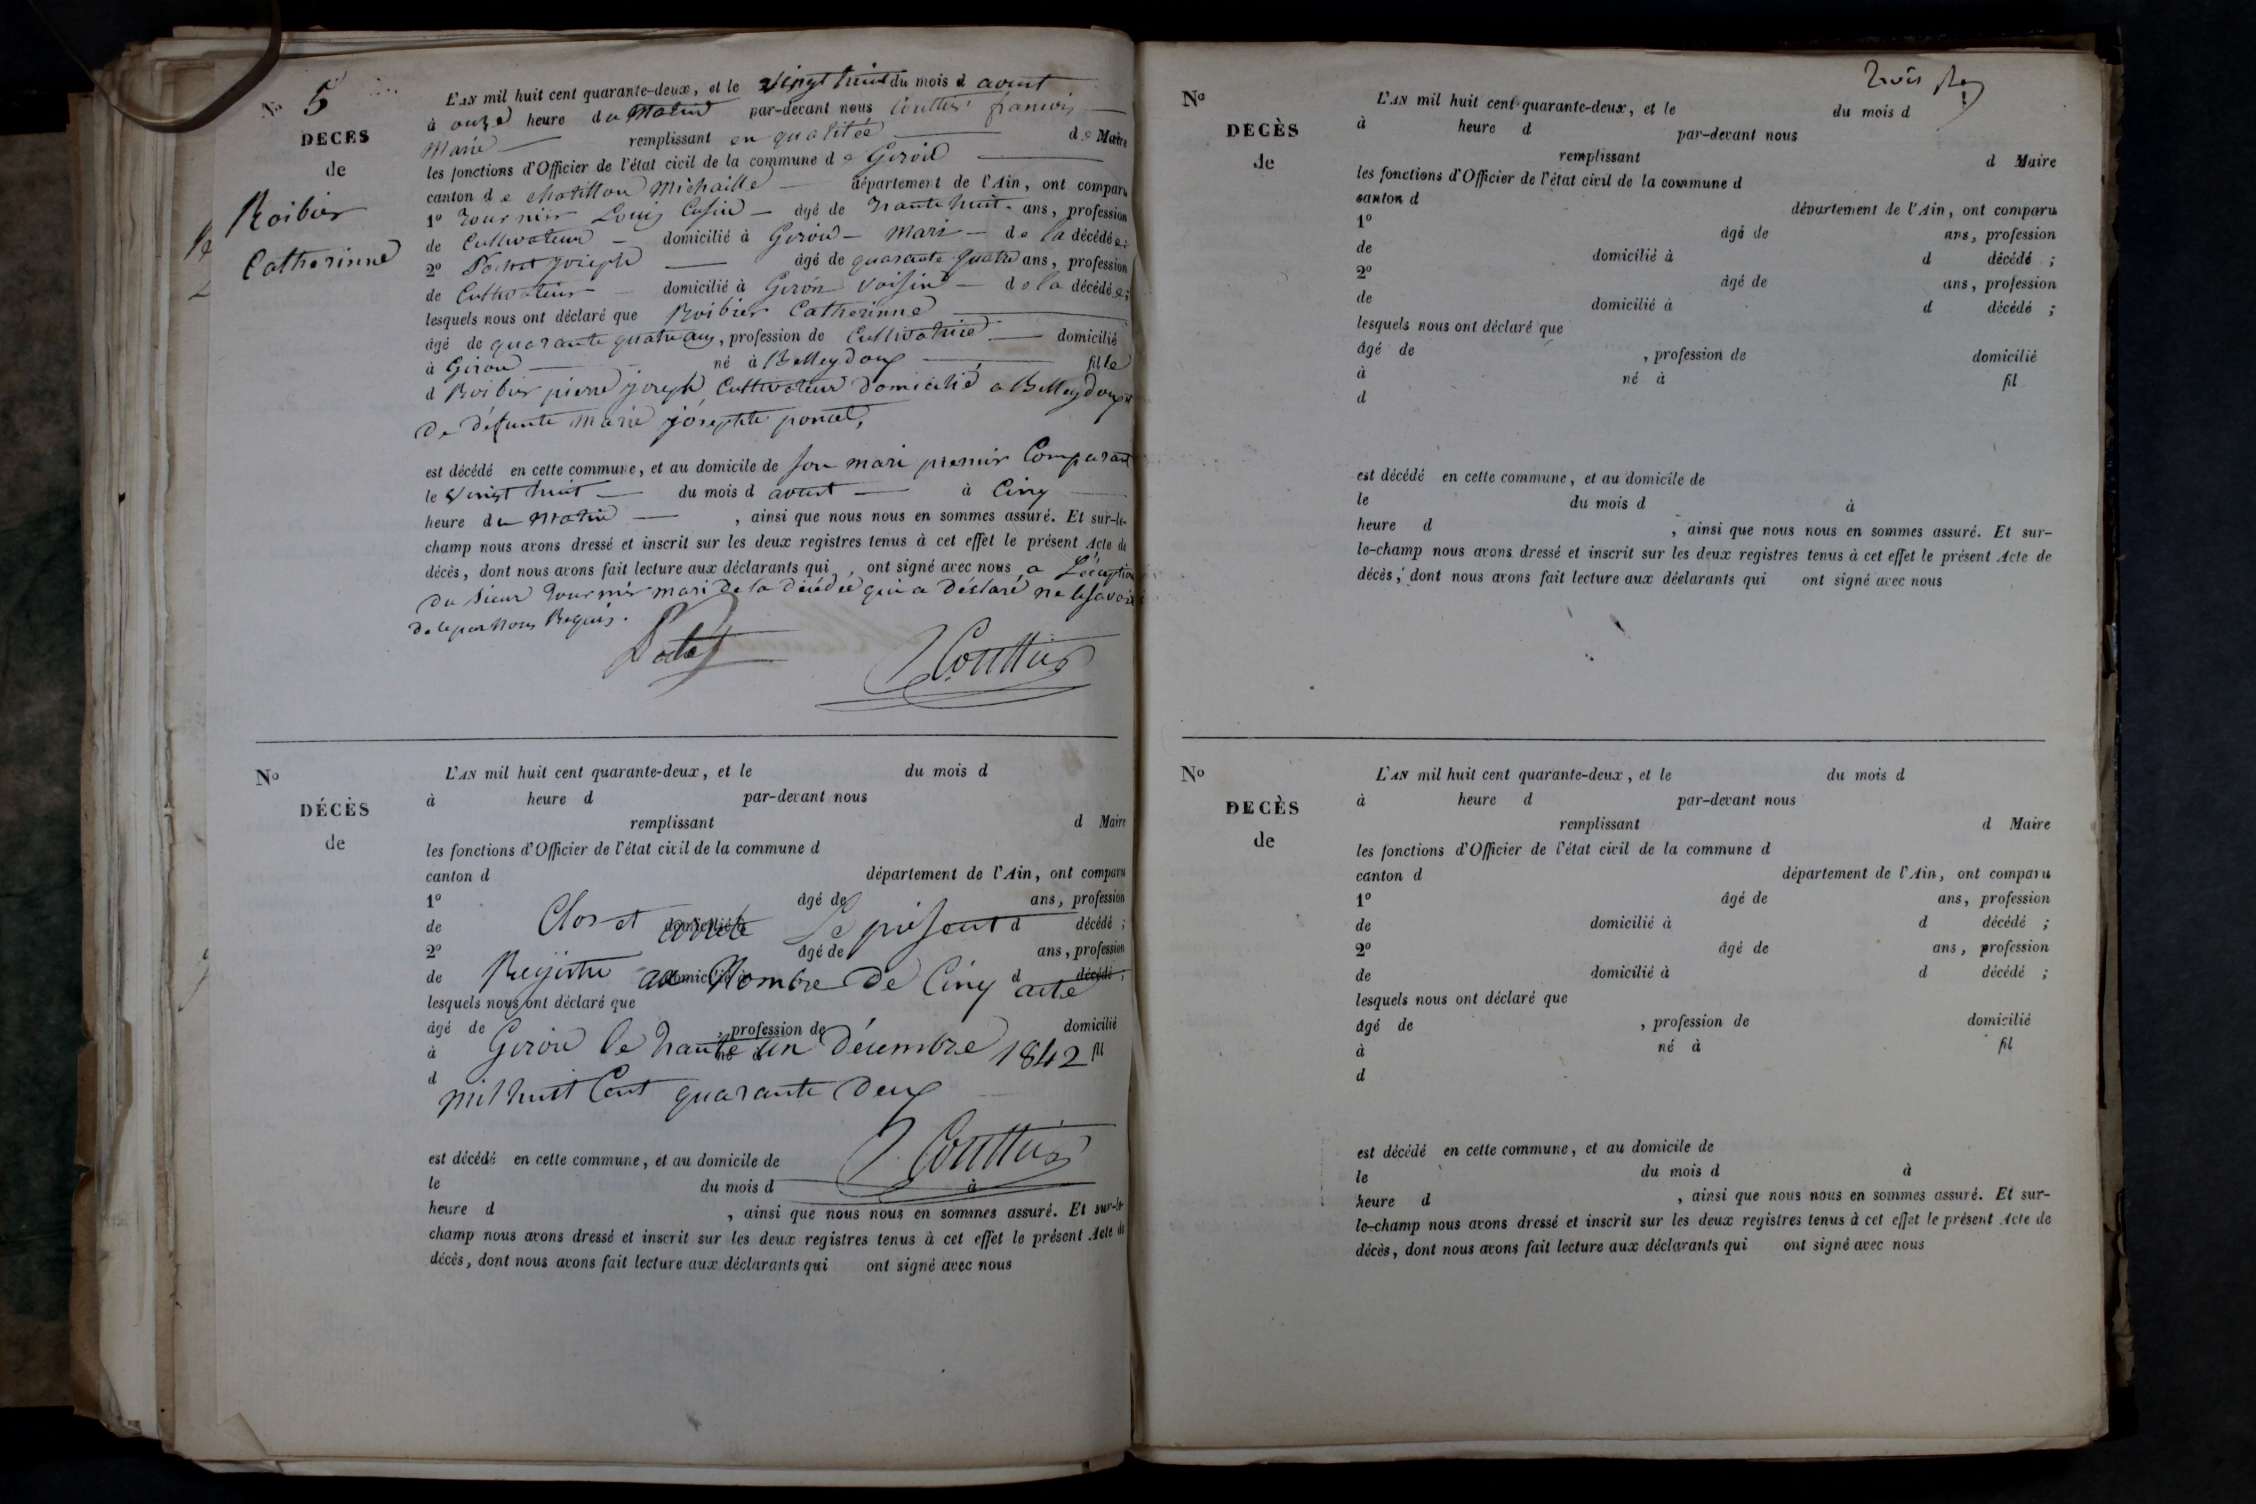 No 5
DECES
de
Roibier
Catherinne
L'AN mil huit cent quarante-deux, et le vingt huit du mois d aout
à onze heure du matin par-devant nous Couttier francois
Marie remplissant en qualitée de Maire
les fonctions d'Officier de l'état civil de la commune de Giron
canton de chatillon Michaille département de l'Ain, ont comparu
1º Tournier Louis âgé de trante huit ans, profession
de Cultivateur domicilié à Giron Mari de la décédée;
2º Joseph âgé de quarante quatre ans, profession
de Cultivateur domicilié à Giron Voisin de la décédée;
lesquels nous ont déclaré que Roibier Catherinne
âgé de quarante quatre ans, profession de Cultivatrice domicilié
à Giron né à Belleydoux fille
d Roibier pierre joseph, Cultivateur Domicilié a Belleydoux et
De défunte Marie josephte poncet,
est décédé en cette commune, et au domicile de son mari premier Comparant
le vingt huit du mois d aout à Cinq
heure du matin , ainsi que nous nous en sommes assuré. Et sur-le-
champ nous avons dressé et inscrit sur les deux registres tenus à cet effet le présent Acte de
décès, dont nous avons fait lecture aux déclarants qui, ont signé avec nous a L'éxeption
du sieur Tournier mari de la Décédée qui a Déclaré ne le savoir
de le par Nous Requis.
Couttier
No
DÉCÈS
de
L'AN mil huit cent quarante-deux, et le du mois d
à heure d par-devant nous
remplissant d Maire
les fonctions d'Officier de l'état civil de la commune d
canton d département de l'Ain, ont comparu
1º âgé de ans, profession
de domicilié à d décédé ;
Clos et arreté Le présent
2º âgé de ans, profession
de domicilié à d décédé ;
Registre au Nombre De Cinq acte
lesquels nous ont déclaré que
âgé de , profession de domicilié
à né à fil
Giron le trante un Décembre 1842
d
mil huit Cent quarante Deux
Couttier
est décédé en cette commune, et au domicile de
le du mois d à
heure d , ainsi que nous nous en sommes assuré. Et sur-le-
champ nous avons dressé et inscrit sur les deux registres tenus à cet effet le présent Acte de
décès, dont nous avons fait lecture aux déclarants qui ont signé avec nous
No
DECÈS
de
L'AN mil huit cent quarante-deux, et le du mois d
à heure d par-devant nous
remplissant d Maire
les fonctions d'Officier de l'état civil de la commune d
canton d département de l'Ain, ont comparu
1º âgé de ans, profession
de domicilié à d décédé ;
2º âgé de ans, profession
de domicilié à d décédé ;
lesquels nous ont déclaré que
âgé de , profession de domicilié
à né à fil
d
est décédé en cette commune, et au domicile de
le du mois d à
heure d , ainsi que nous nous en sommes assuré. Et sur-
le-champ nous avons dressé et inscrit sur les deux registres tenus à cet effet le présent Acte de
décès, dont nous avons fait lecture aux déclarants qui ont signé avec nous
No
DECÈS
de
L'AN mil huit cent quarante-deux, et le du mois d
à heure d par-devant nous
remplissant d Maire
les fonctions d'Officier de l'état civil de la commune d
canton d département de l'Ain, ont comparu
1º âgé de ans, profession
de domicilié à d décédé ;
2º âgé de ans, profession
de domicilié à d décédé ;
lesquels nous ont déclaré que
âgé de , profession de domicilié
à né à fil
d
est décédé en cette commune, et au domicile de
le du mois d à
heure d , ainsi que nous nous en sommes assuré. Et sur-
le-champ nous avons dressé et inscrit sur les deux registres tenus à cet effet le présent Acte de
décès, dont nous avons fait lecture aux déclarants qui ont signé avec nous